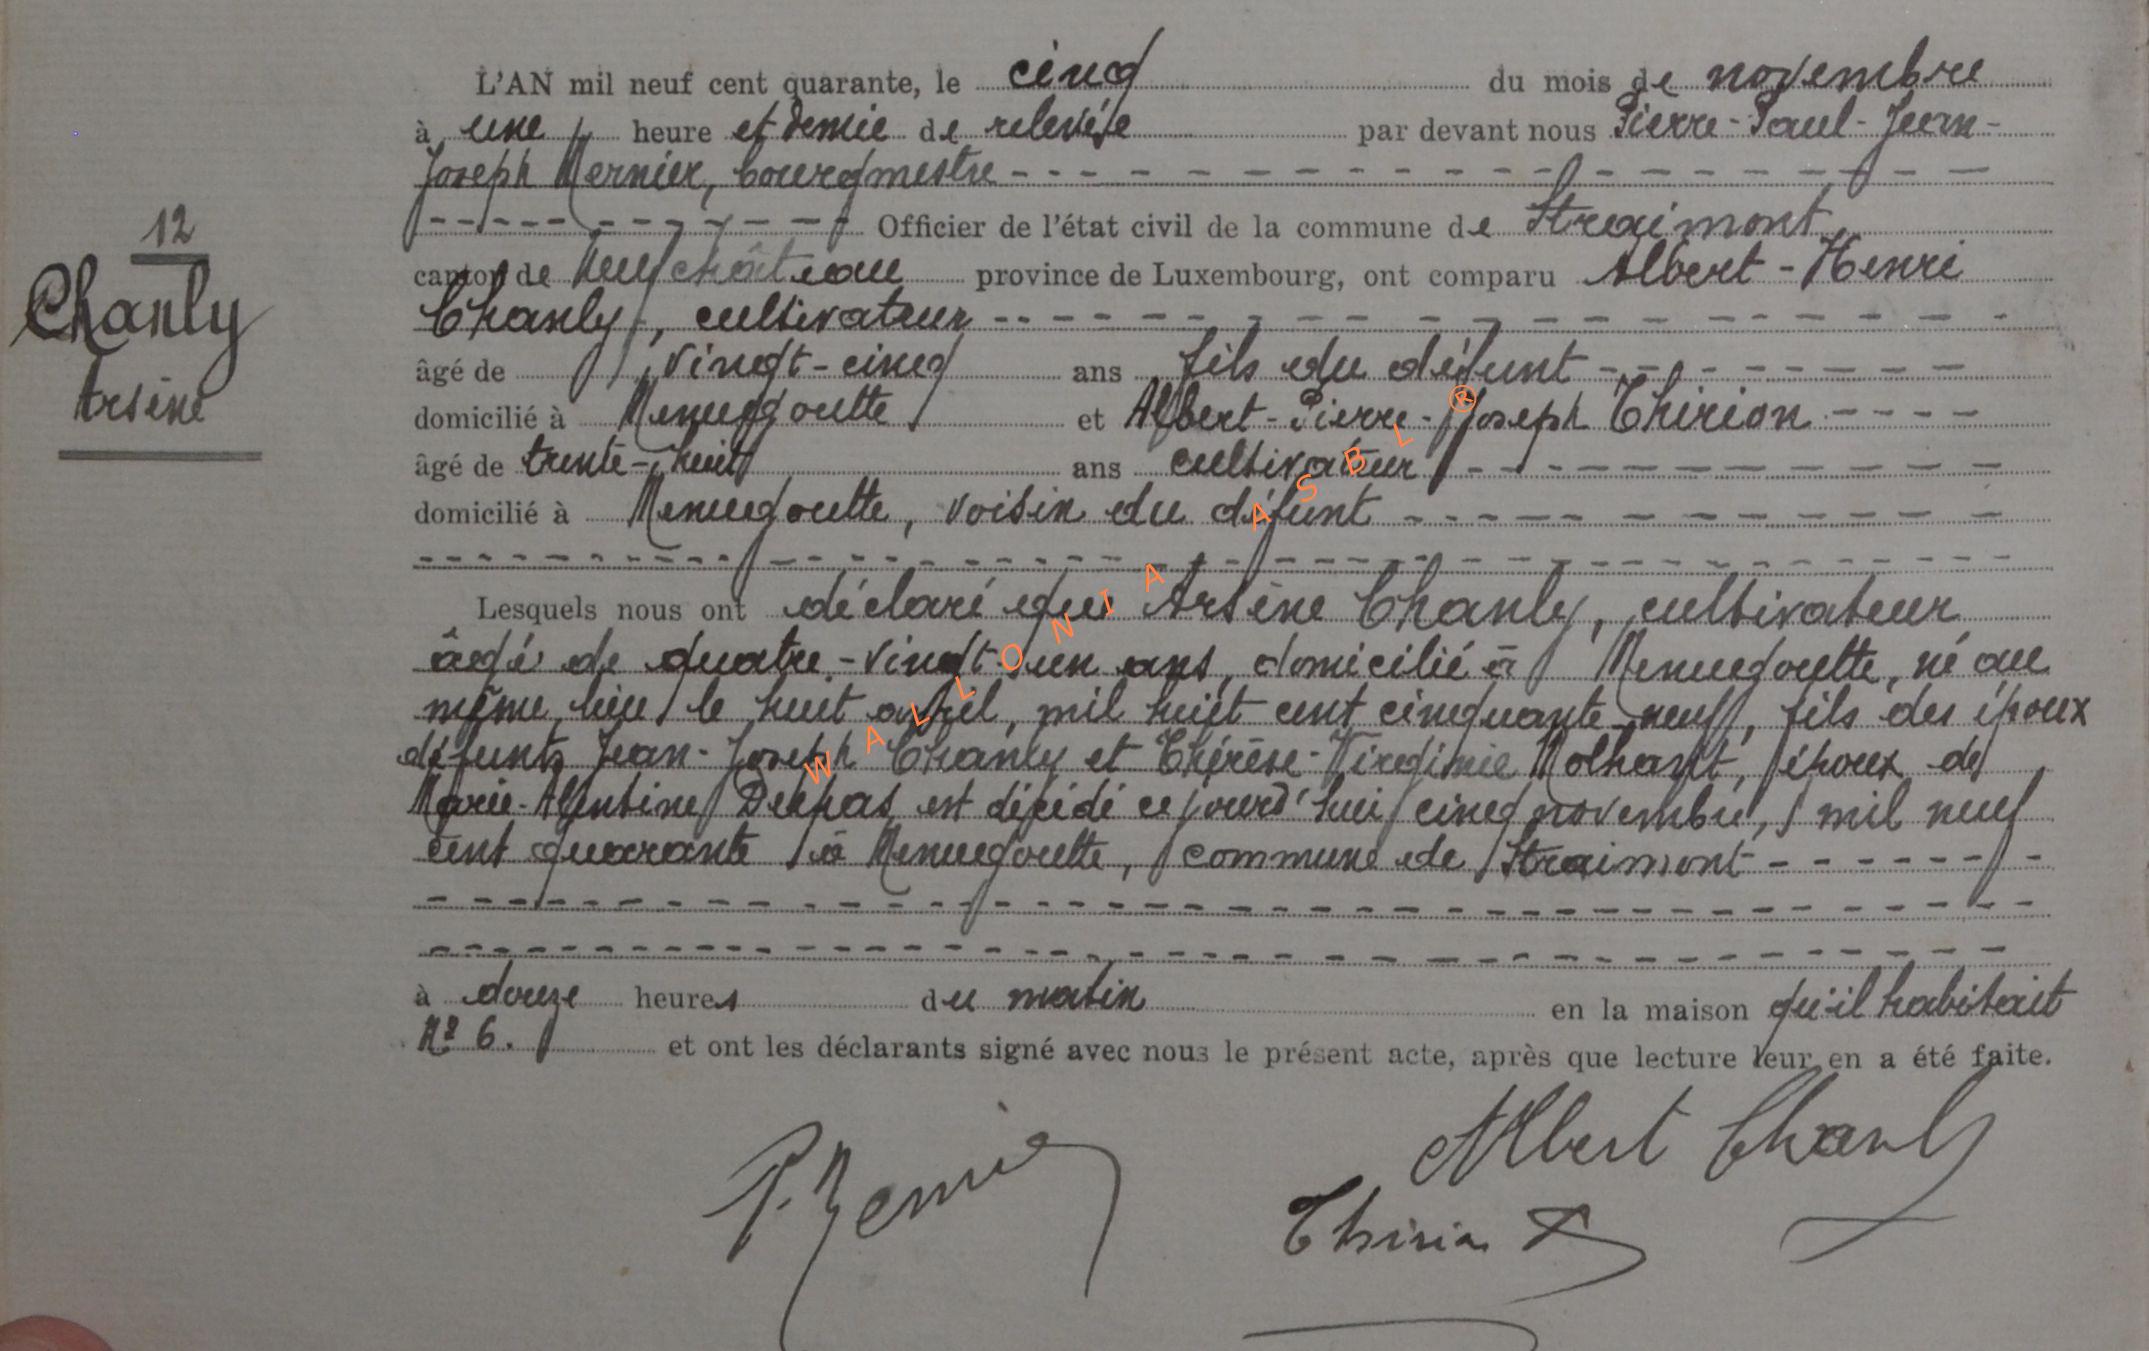 L'AN mil neuf cent quarante, le cinq du mois de novembre
à une heure et demie de relevée par devant nous Pierre-Paul-Jean-
Joseph Mernier, bourgmestre
Officier de l'état civil de la commune de Straimont
canton de Neufchâteau province de Luxembourg, ont comparu Albert-Henri
Chanly, cultivateur
âgé de vingt-cinq ans fils du défunt
domicilié à Menugoutte et Albert-Pierre-Joseph Thirion
âgé de trente-huit ans cultivateur
domicilié à Menugoutte, voisin du défunt
Lesquels nous ont déclaré que Arsène Chanly, cultivateur
âgé de quatre-vingt-un ans, domicilié à Menugoutte, né au
même lieu le huit avril, mil huit cent cinquante-neuf, fils des époux
défunts Jean-Joseph Chanly et Thérèse-Virginie Molhant, époux de
Marie-Alphonsine est décédé ce jourd'hui cinq novembre, mil neuf
cent quarante à Menugoutte, commune de Straimont
à douze heures du matin en la maison qu'il habitait
N° 6. et ont les déclarants signé avec nous le présent acte, après que lecture leur en a été faite.
12
Chanly
Arsène
WALLONIA ASBL ®
P. Mernier
Albert Chanly
Thirion A